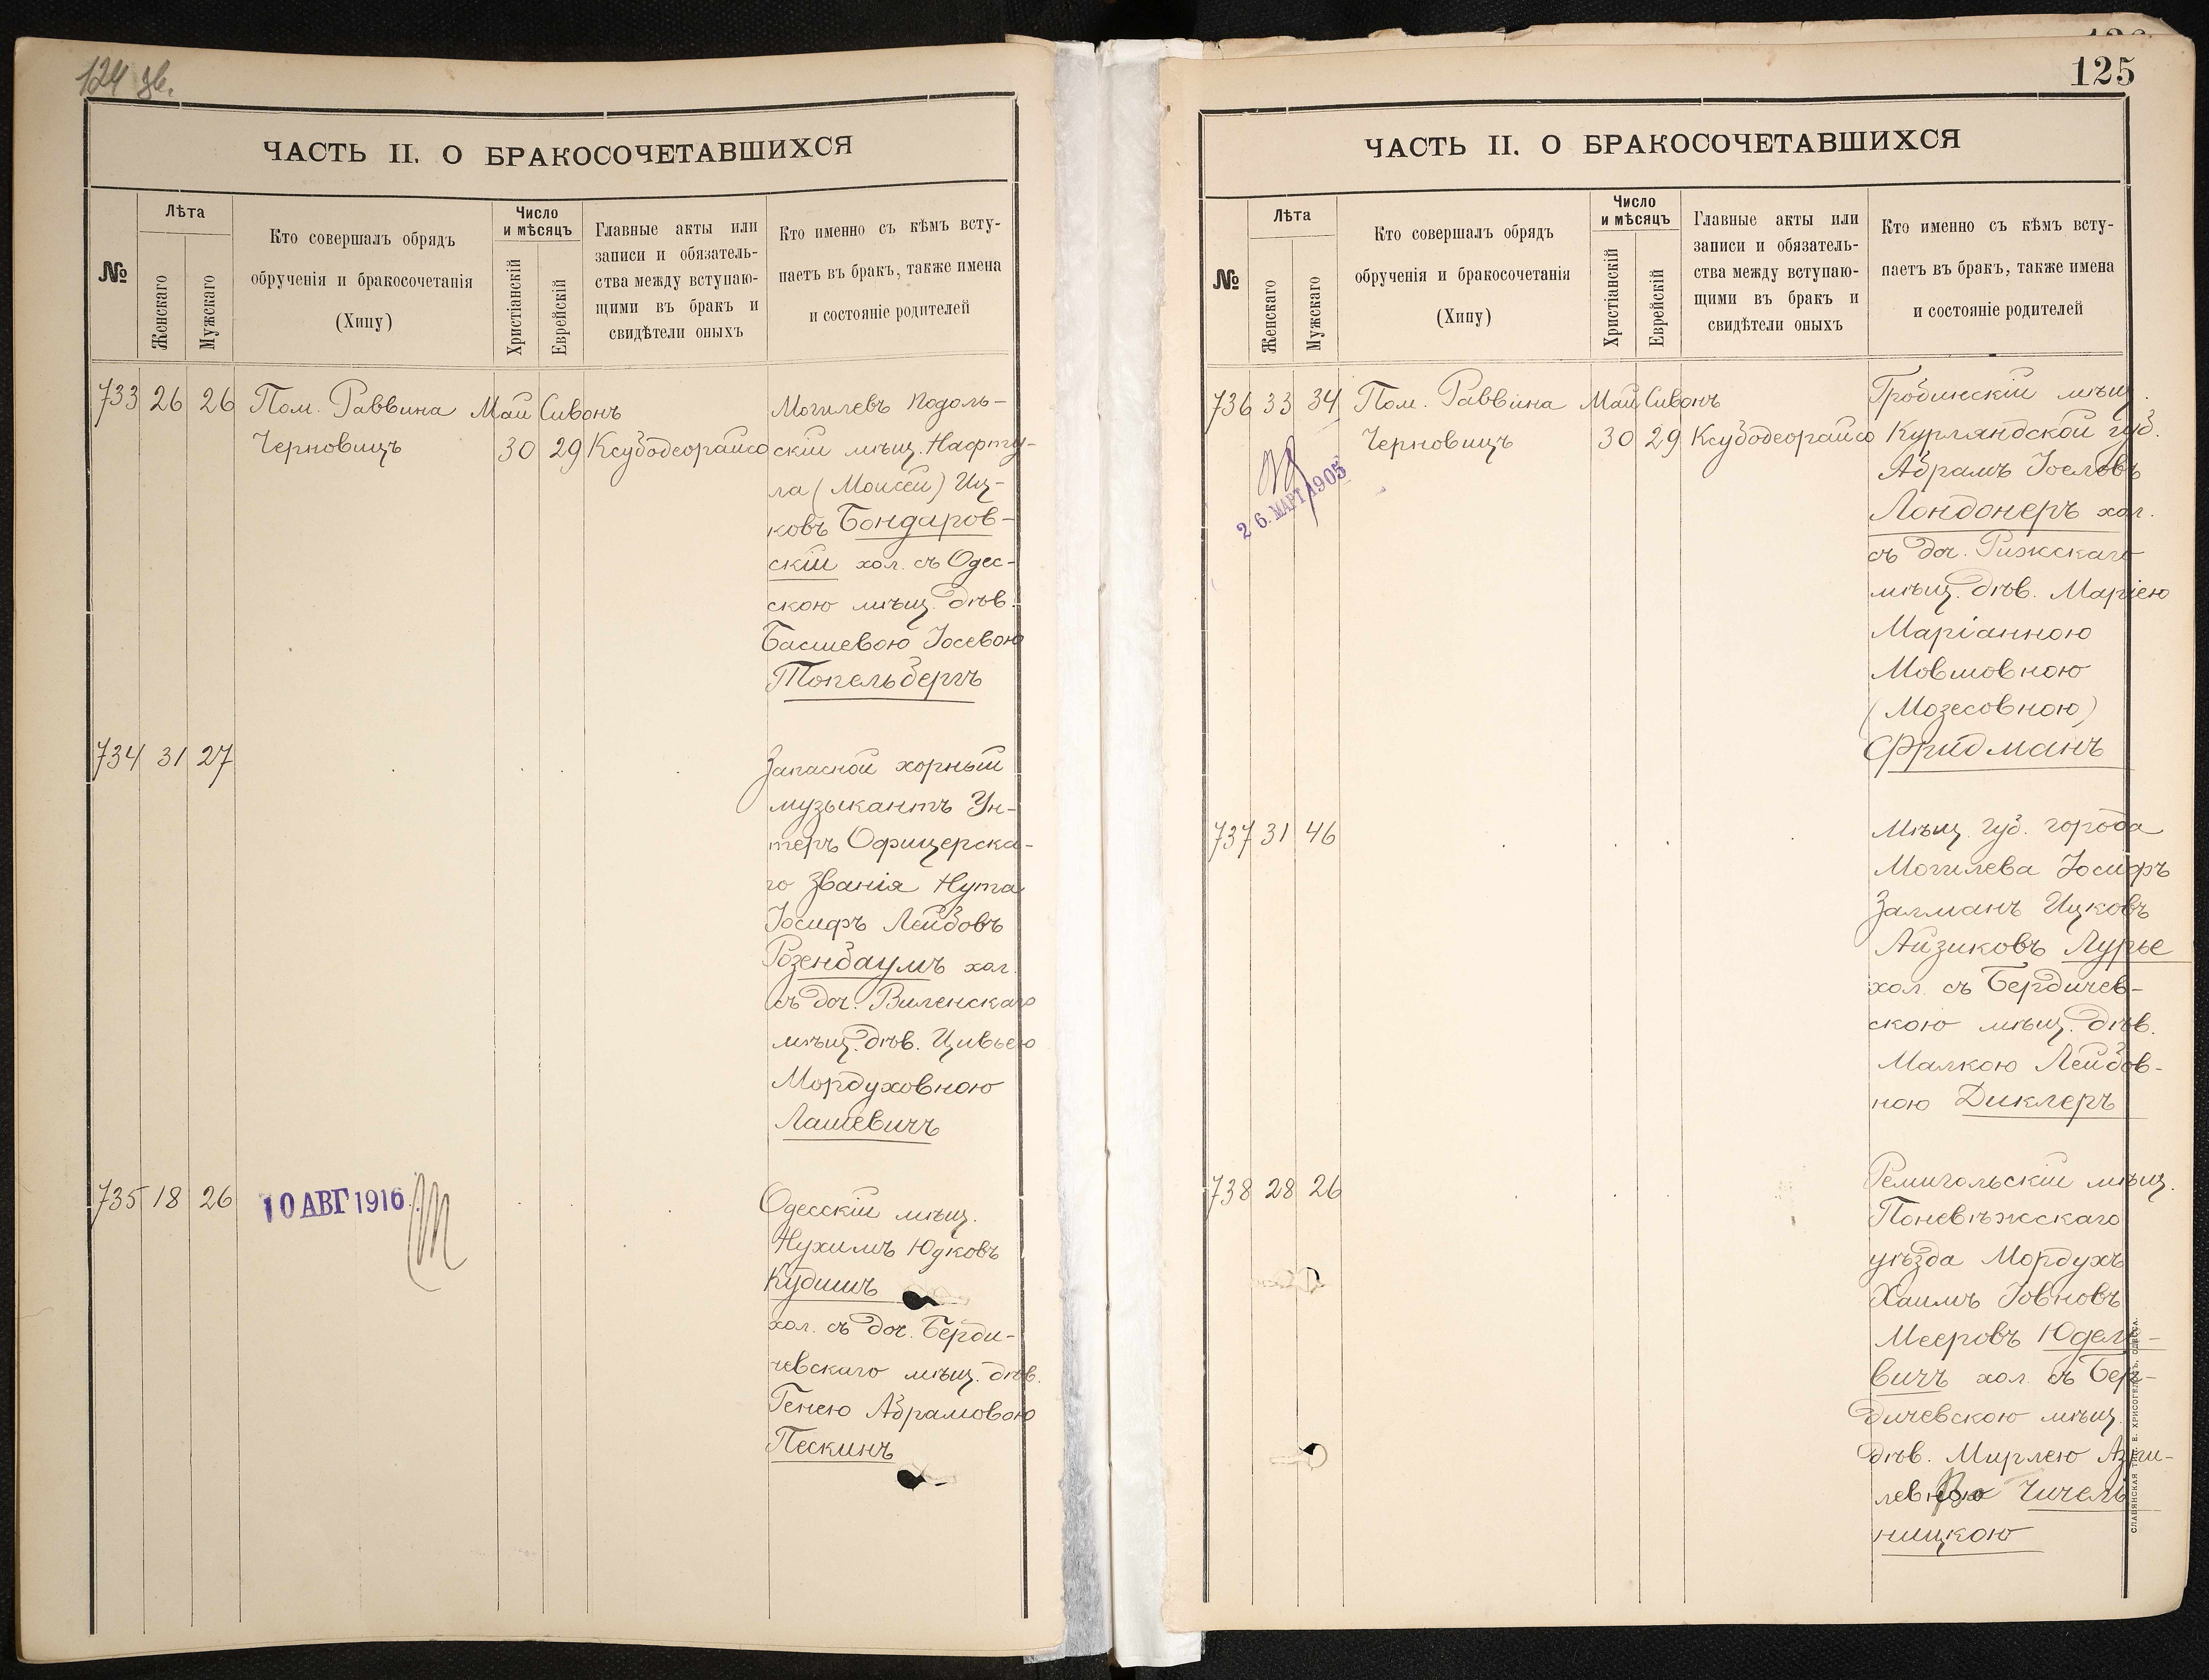 124 зв.
ЧАСТЬ II. О БРАКОСОЧЕТАВШИХСЯ
№
Лѣта
Женскаго
Мужскаго
Кто совершалъ обрядъ
обрученія и бракосочетанія
(Хипу)
Число
и мѣсяцъ
Христіанскій
Еврейскій
Главные акты или
записи и обязатель-
ства между вступаю-
щими въ бракъ и
свидѣтели оныхъ
Кто именно съ кѣмъ всту-
паетъ въ бракъ, также имена
и состояніе родителей
733 26 26 Пом. Раввина Май Сивонъ
Черновицъ 30 29 Ксубодеорайсо
Могилевъ Подоль-
скій мѣщ. Нафту-
ла (Моисей) Иц-
ковъ Бондаров-
скій хол. съ Одес-
скою мѣщ. дѣв.
Басшевою Іосевою
Топельбергъ
734 31 27
Запасной хорный
музыкантъ Ун-
теръ Офицерска-
го званія Нута
Іосифъ Лейбовъ
Розенбаумъ хол.
съ доч. Виленскаго
мѣщ. дѣв. Цивьею
Мордуховною
Лашевичъ
735 18 26 10 АВГ 1916
Одесскій мѣщ.
Нухимъ Юдковъ
Кудишъ
хол. съ доч. Берди-
чевскаго мѣщ. дѣв.
Генею Абрамовою
Пескинъ
125
ЧАСТЬ II. О БРАКОСОЧЕТАВШИХСЯ
№
Лѣта
Женскаго
Мужскаго
Кто совершалъ обрядъ
обрученія и бракосочетанія
(Хипу)
Число
и мѣсяцъ
Христіанскій
Еврейскій
Главные акты или
записи и обязатель-
ства между вступаю-
щими въ бракъ и
свидѣтели оныхъ
Кто именно съ кѣмъ всту-
паетъ въ бракъ, также имена
и состояніе родителей
736 33 34 Пом. Раввина Май Сивонъ
Черновицъ 30 29 Ксубодеорайсо
26. МАРТ 1905
Гробинскій мѣщ.
Курляндской губ.
Абрамъ Іоселовъ
Лондонеръ хол.
съ доч. Рижскаго
мѣщ. дѣв. Маріею
Маріанною
Мовшовною
(Мозесовною)
Фридманъ
737 31 46
Мѣщ. губ. города
Могилева Іосифъ
Залманъ Ицковъ
Айзиковъ Лурье
хол. съ Бердичев-
скою мѣщ. дѣв.
Малкою Лейбов-
ною Диклеръ
738 28 26
Ремигольскій мѣщ.
Поневѣжскаго
уѣзда Мордухъ
Хаимъ Іовновъ
Мееровъ Юделе-
вичъ хол. съ Бер-
дичевскою мѣщ.
дѣв. Мирлею Азри-
левною Чичель
ницкою
СЛАВЯНСКАЯ ТИП. Е. ХРИСОГЕЛОСЪ, ОДЕССА.